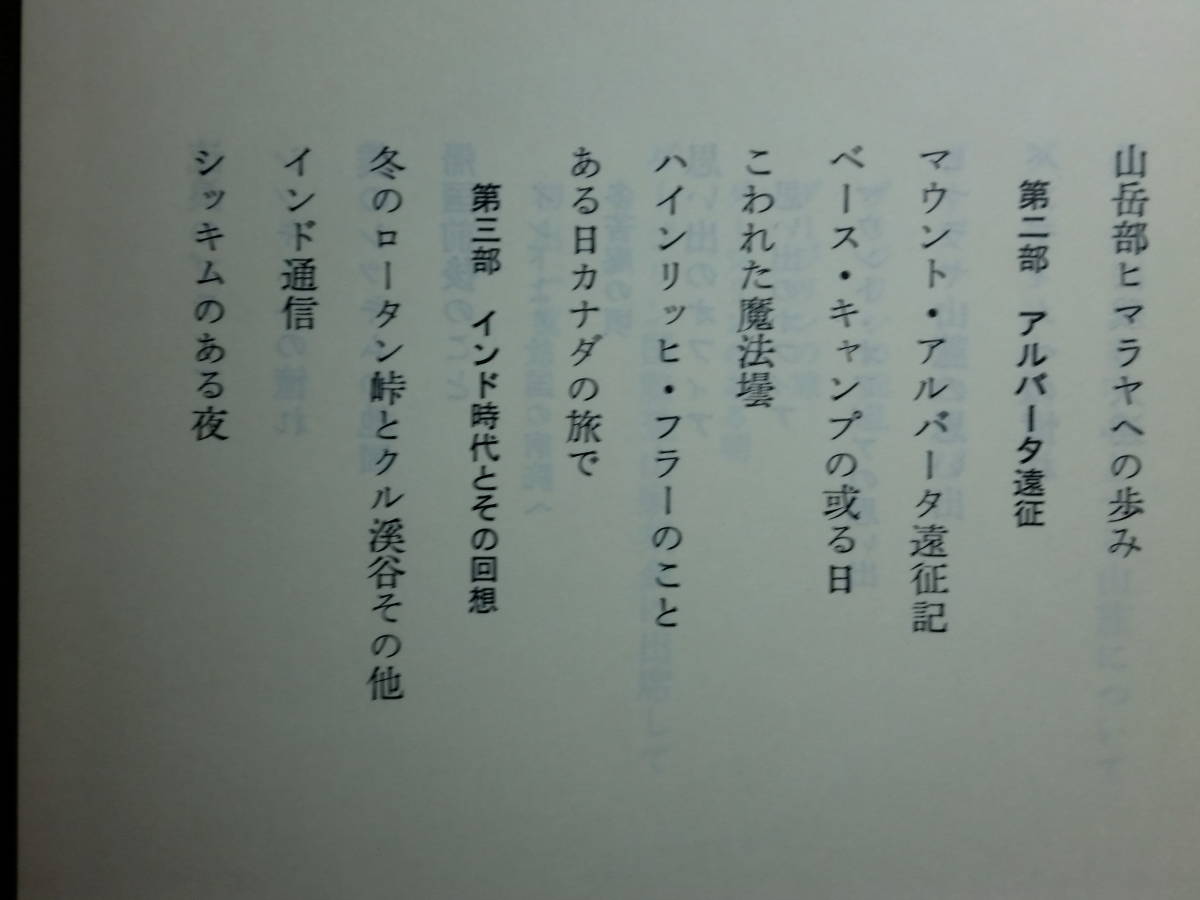 山岳部ヒマラヤへの歩み
第二部 アルバータ遠征
マウント・アルバータ遠征記
ベース・キャンプの或る日
こわれた魔法壜
ハインリッヒ・フラーのこと
ある日カナダの旅で
第三部 インド時代とその回想
冬のロータン峠とクル溪谷その他
インド通信
シッキムのある夜